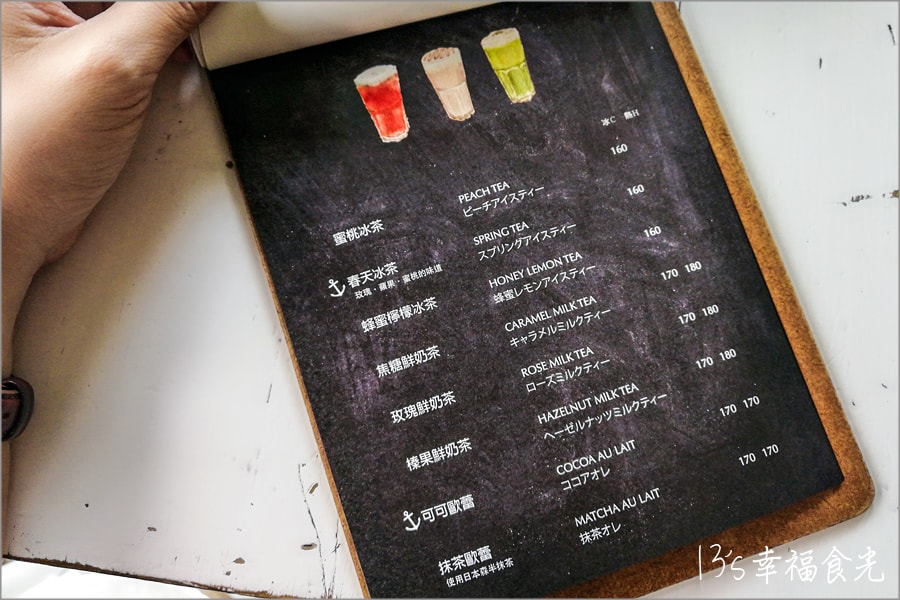 冰C 熱H
蜜桃冰茶
PEACH TEA
ピーチアイスティー
160
春天冰茶
玫瑰、蘋果、蜜桃的味道
SPRING TEA
スプリングアイスティー
160
蜂蜜檸檬冰茶
HONEY LEMON TEA
蜂蜜レモンアイスティー
160
焦糖鮮奶茶
CARAMEL MILK TEA
キャラメルミルクティー
170 180
玫瑰鮮奶茶
ROSE MILK TEA
ローズミルクティー
170 180
榛果鮮奶茶
HAZELNUT MILK TEA
ヘーゼルナッツミルクティー
170 180
可可歐蕾
COCOA AU LAIT
ココアオレ
170 170
抹茶歐蕾
使用日本森半抹茶
MATCHA AU LAIT
抹茶オレ
170 170
13's幸福食光